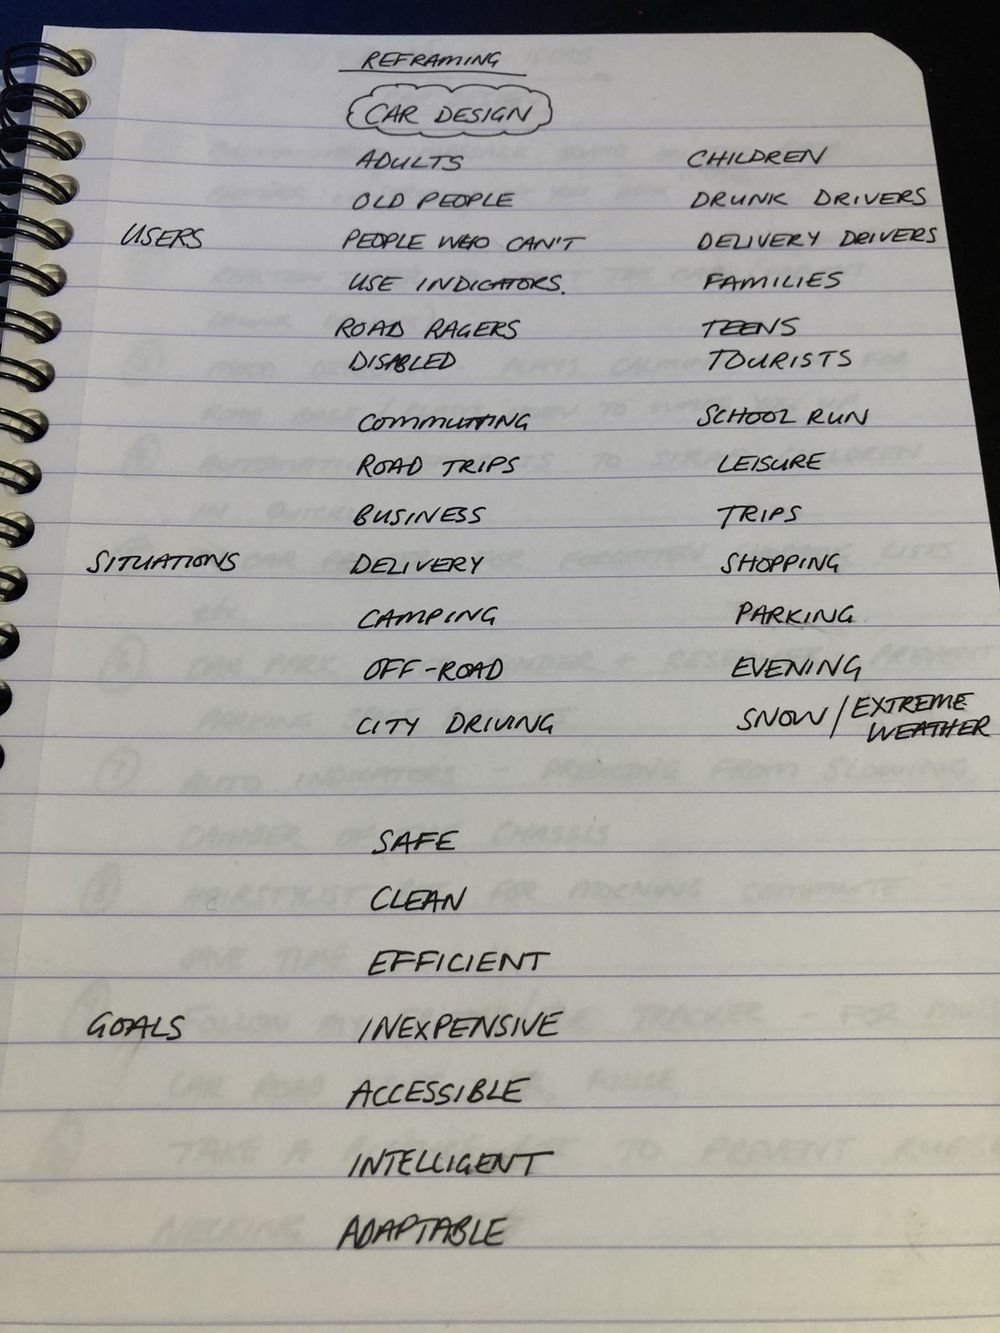 REFRAMING
CAR DESIGN
ADULTS CHILDREN
OLD PEOPLE DRUNK DRIVERS
USERS PEOPLE WHO CAN'T DELIVERY DRIVERS
USE INDICATORS. FAMILIES
ROAD RAGERS TEENS
DISABLED TOURISTS
COMMUTTING SCHOOL RUN
ROAD TRIPS LEISURE
BUSINESS TRIPS
SITUATIONS DELIVERY SHOPPING
CAMPING PARKING
OFF-ROAD EVENING
CITY DRIVING SNOW / EXTREME
WEATHER
SAFE
CLEAN
EFFICIENT
GOALS INEXPENSIVE
ACCESSIBLE
INTELLIGENT
ADAPTABLE